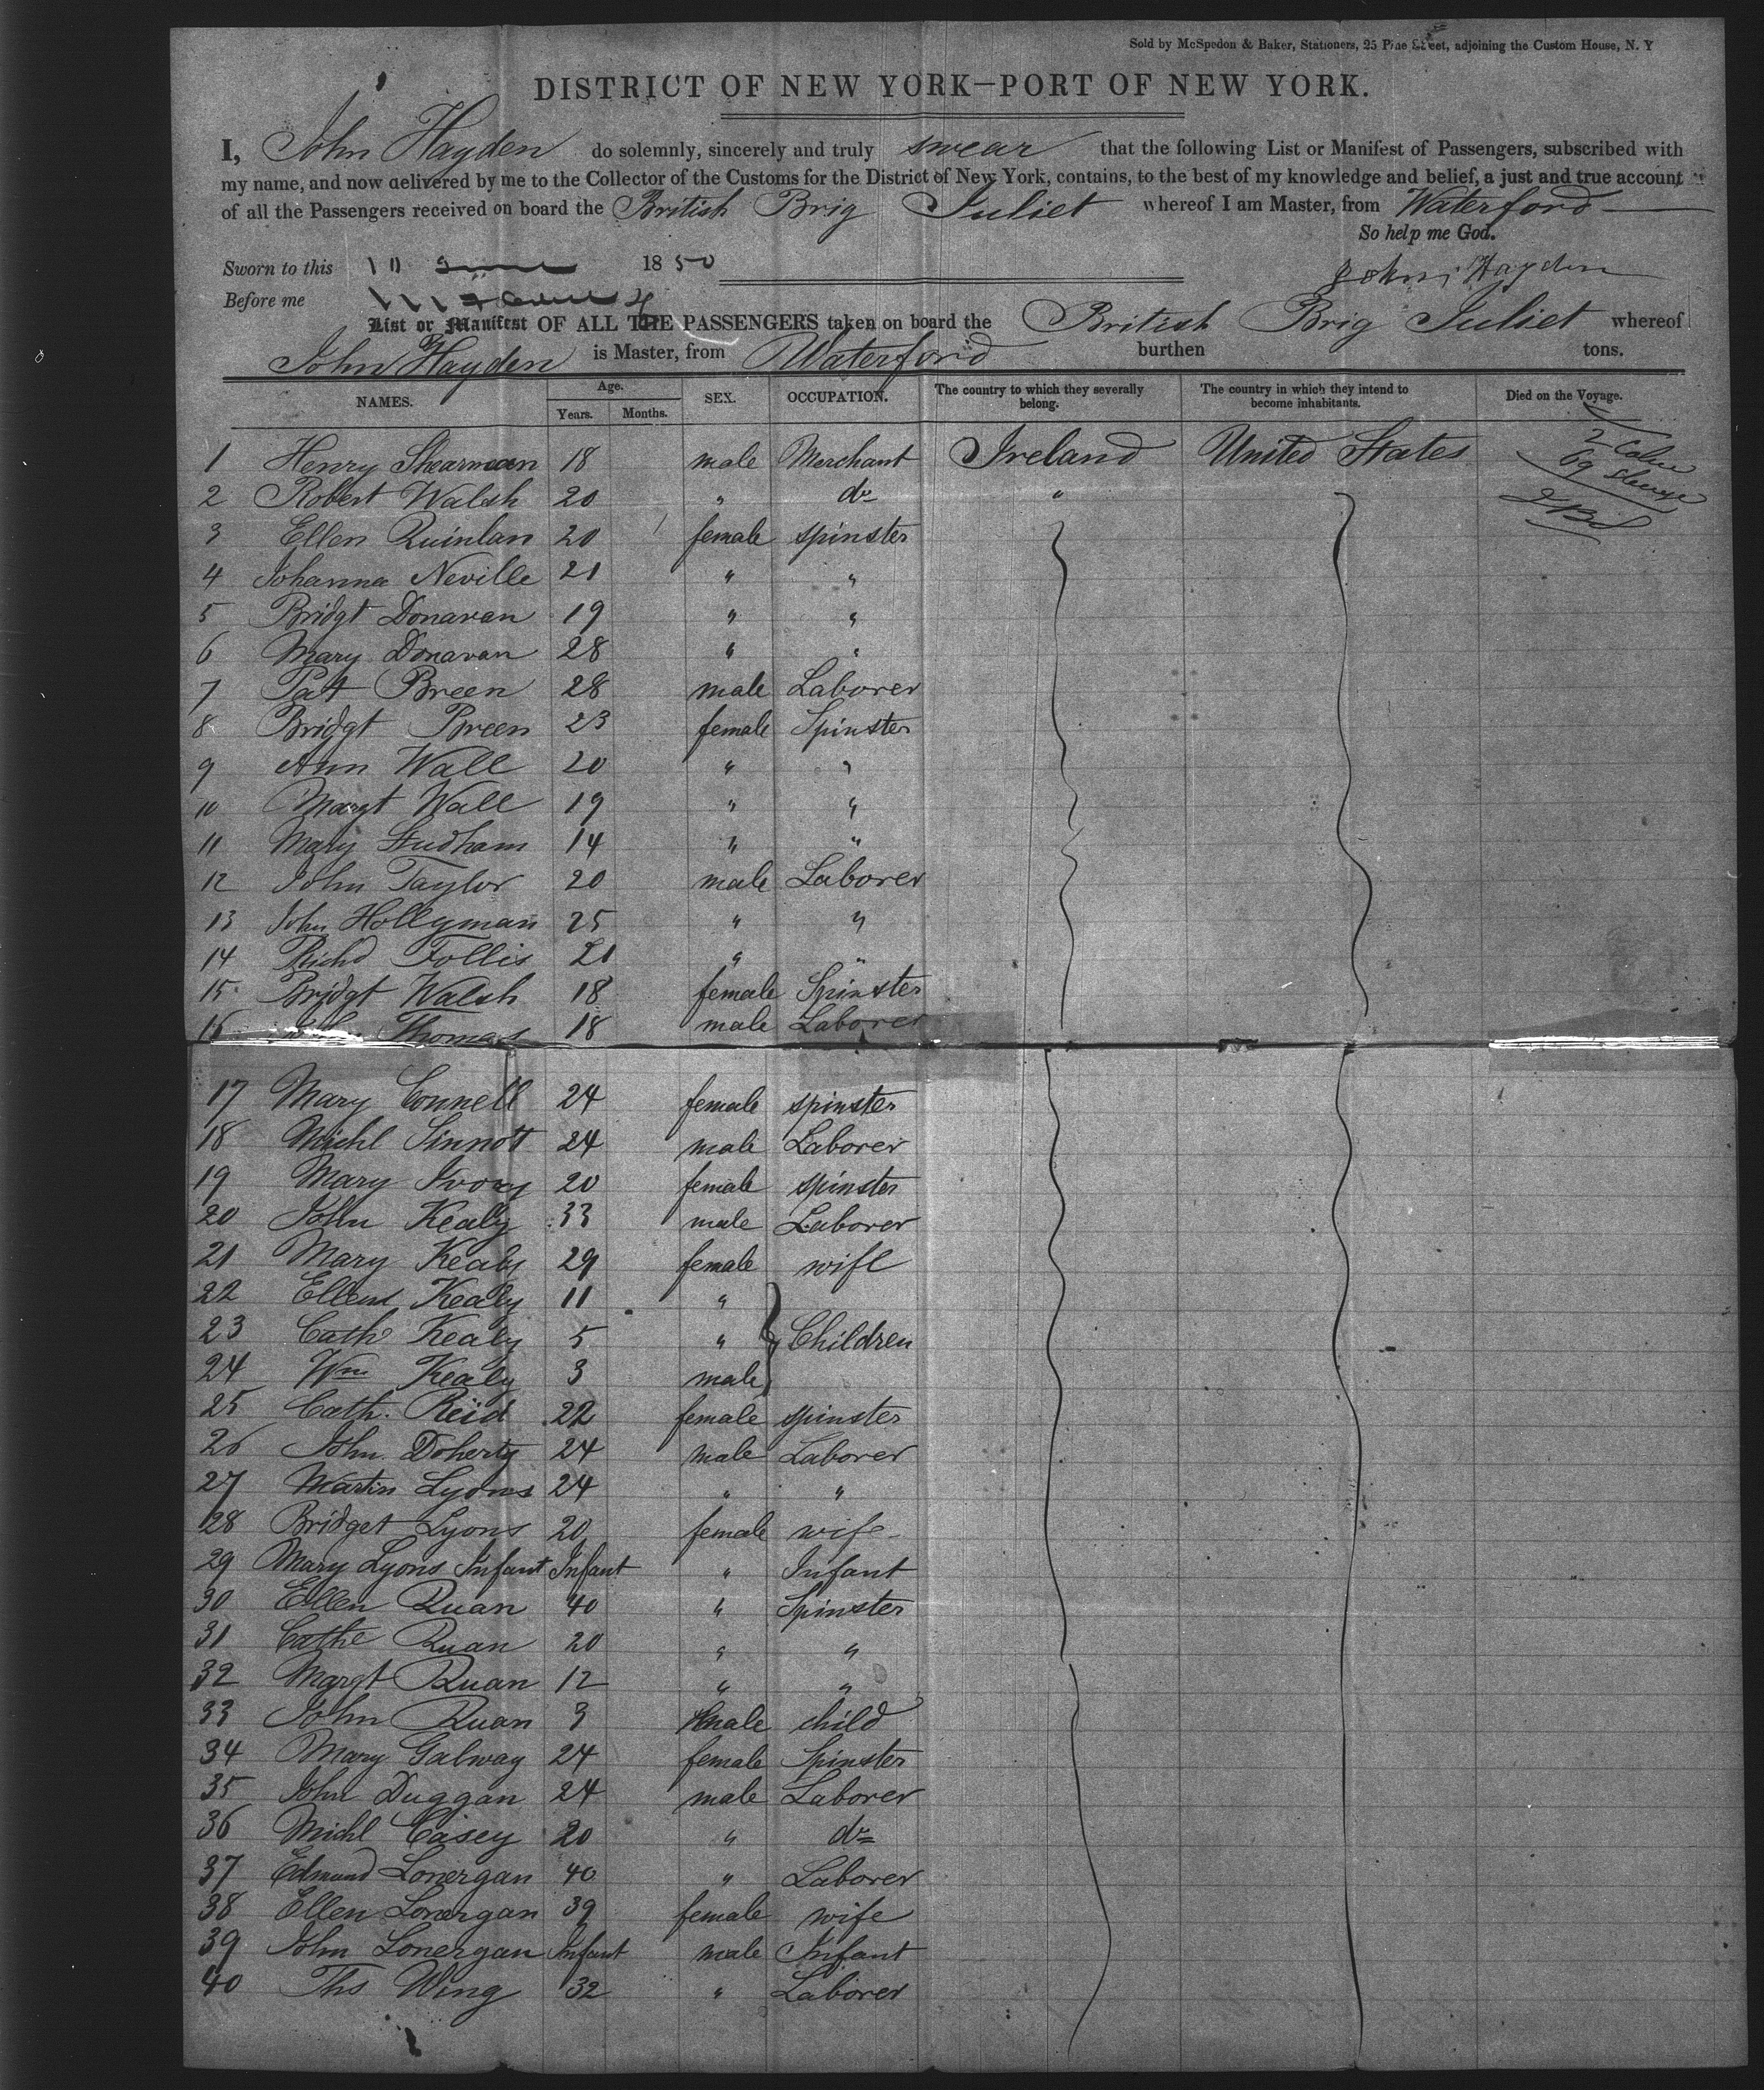 Sold by McSpedon & Baker, Stationers, 25 Pine Street, adjoining the Custom House, N. Y
DISTRICT OF NEW YORK—PORT OF NEW YORK.
I, John Hayden do solemnly, sincerely and truly swear that the following List or Manifest of Passengers, subscribed with
my name, and now delivered by me to the Collector of the Customs for the District of New York, contains, to the best of my knowledge and belief, a just and true account
of all the Passengers received on board the British Brig Juliet whereof I am Master, from Waterford
So help me God.
Sworn to this June 1850 John Hayden
Before me
List or Manifest OF ALL THE PASSENGERS taken on board the British Brig Juliet whereof
John Hayden is Master, from Waterford burthen tons.
NAMES. Age. Years. Months. SEX. OCCUPATION. The country to which they severally belong. The country in which they intend to become inhabitants. Died on the Voyage.
1 Henry Shearman 18 male Merchant Ireland United States
2 Robert Walsh 20 " do "
3 Ellen Quinlan 20 female spinster
4 Johanna Neville 21 " "
5 Bridgt Donavan 19 " "
6 Mary Donavan 28 " "
7 Pat Breen 28 male Laborer
8 Bridgt Breen 23 female Spinster
9 Ann Wall 20 " "
10 Margt Wall 19 " "
11 Mary Studham 14 " "
12 John Taylor 20 male Laborer
13 John Hollyman 25 " "
14 Richd Follis 21 " "
15 Bridgt Walsh 18 female Spinster
16 Thomas 18 male Laborer
17 Mary Connell 24 female spinster
18 Michl Sinnott 24 male Laborer
19 Mary Ivory 20 female spinster
20 John Kealy 33 male Laborer
21 Mary Kealy 29 female wife
22 Ellen Kealy 11 "
23 Cath Kealy 5 " Children
24 Wm Kealy 3 male
25 Cath. Reid 22 female spinster
26 John Doherty 24 male Laborer
27 Martin Lyons 24 " "
28 Bridget Lyons 20 female wife
29 Mary Lyons Infant Infant " Infant
30 Ellen Ruan 40 " Spinster
31 Cathe Ruan 20 " "
32 Margt Ruan 12 " "
33 John Ruan 3 male child
34 Mary Galway 24 female Spinster
35 John Duggan 24 male Laborer
36 Michl Casey 20 " do
37 Edmund Lonergan 40 " Laborer
38 Ellen Lonergan 39 female wife
39 John Lonergan Infant male Infant
40 Ths Wing 32 " Laborer